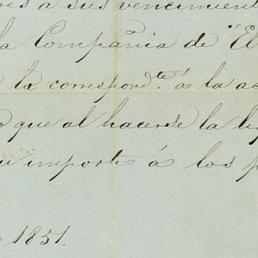 á sus vencimient
la Compañia de "El
la correspond.te á la ac
que al hacerse la li
importe á los p
1851.